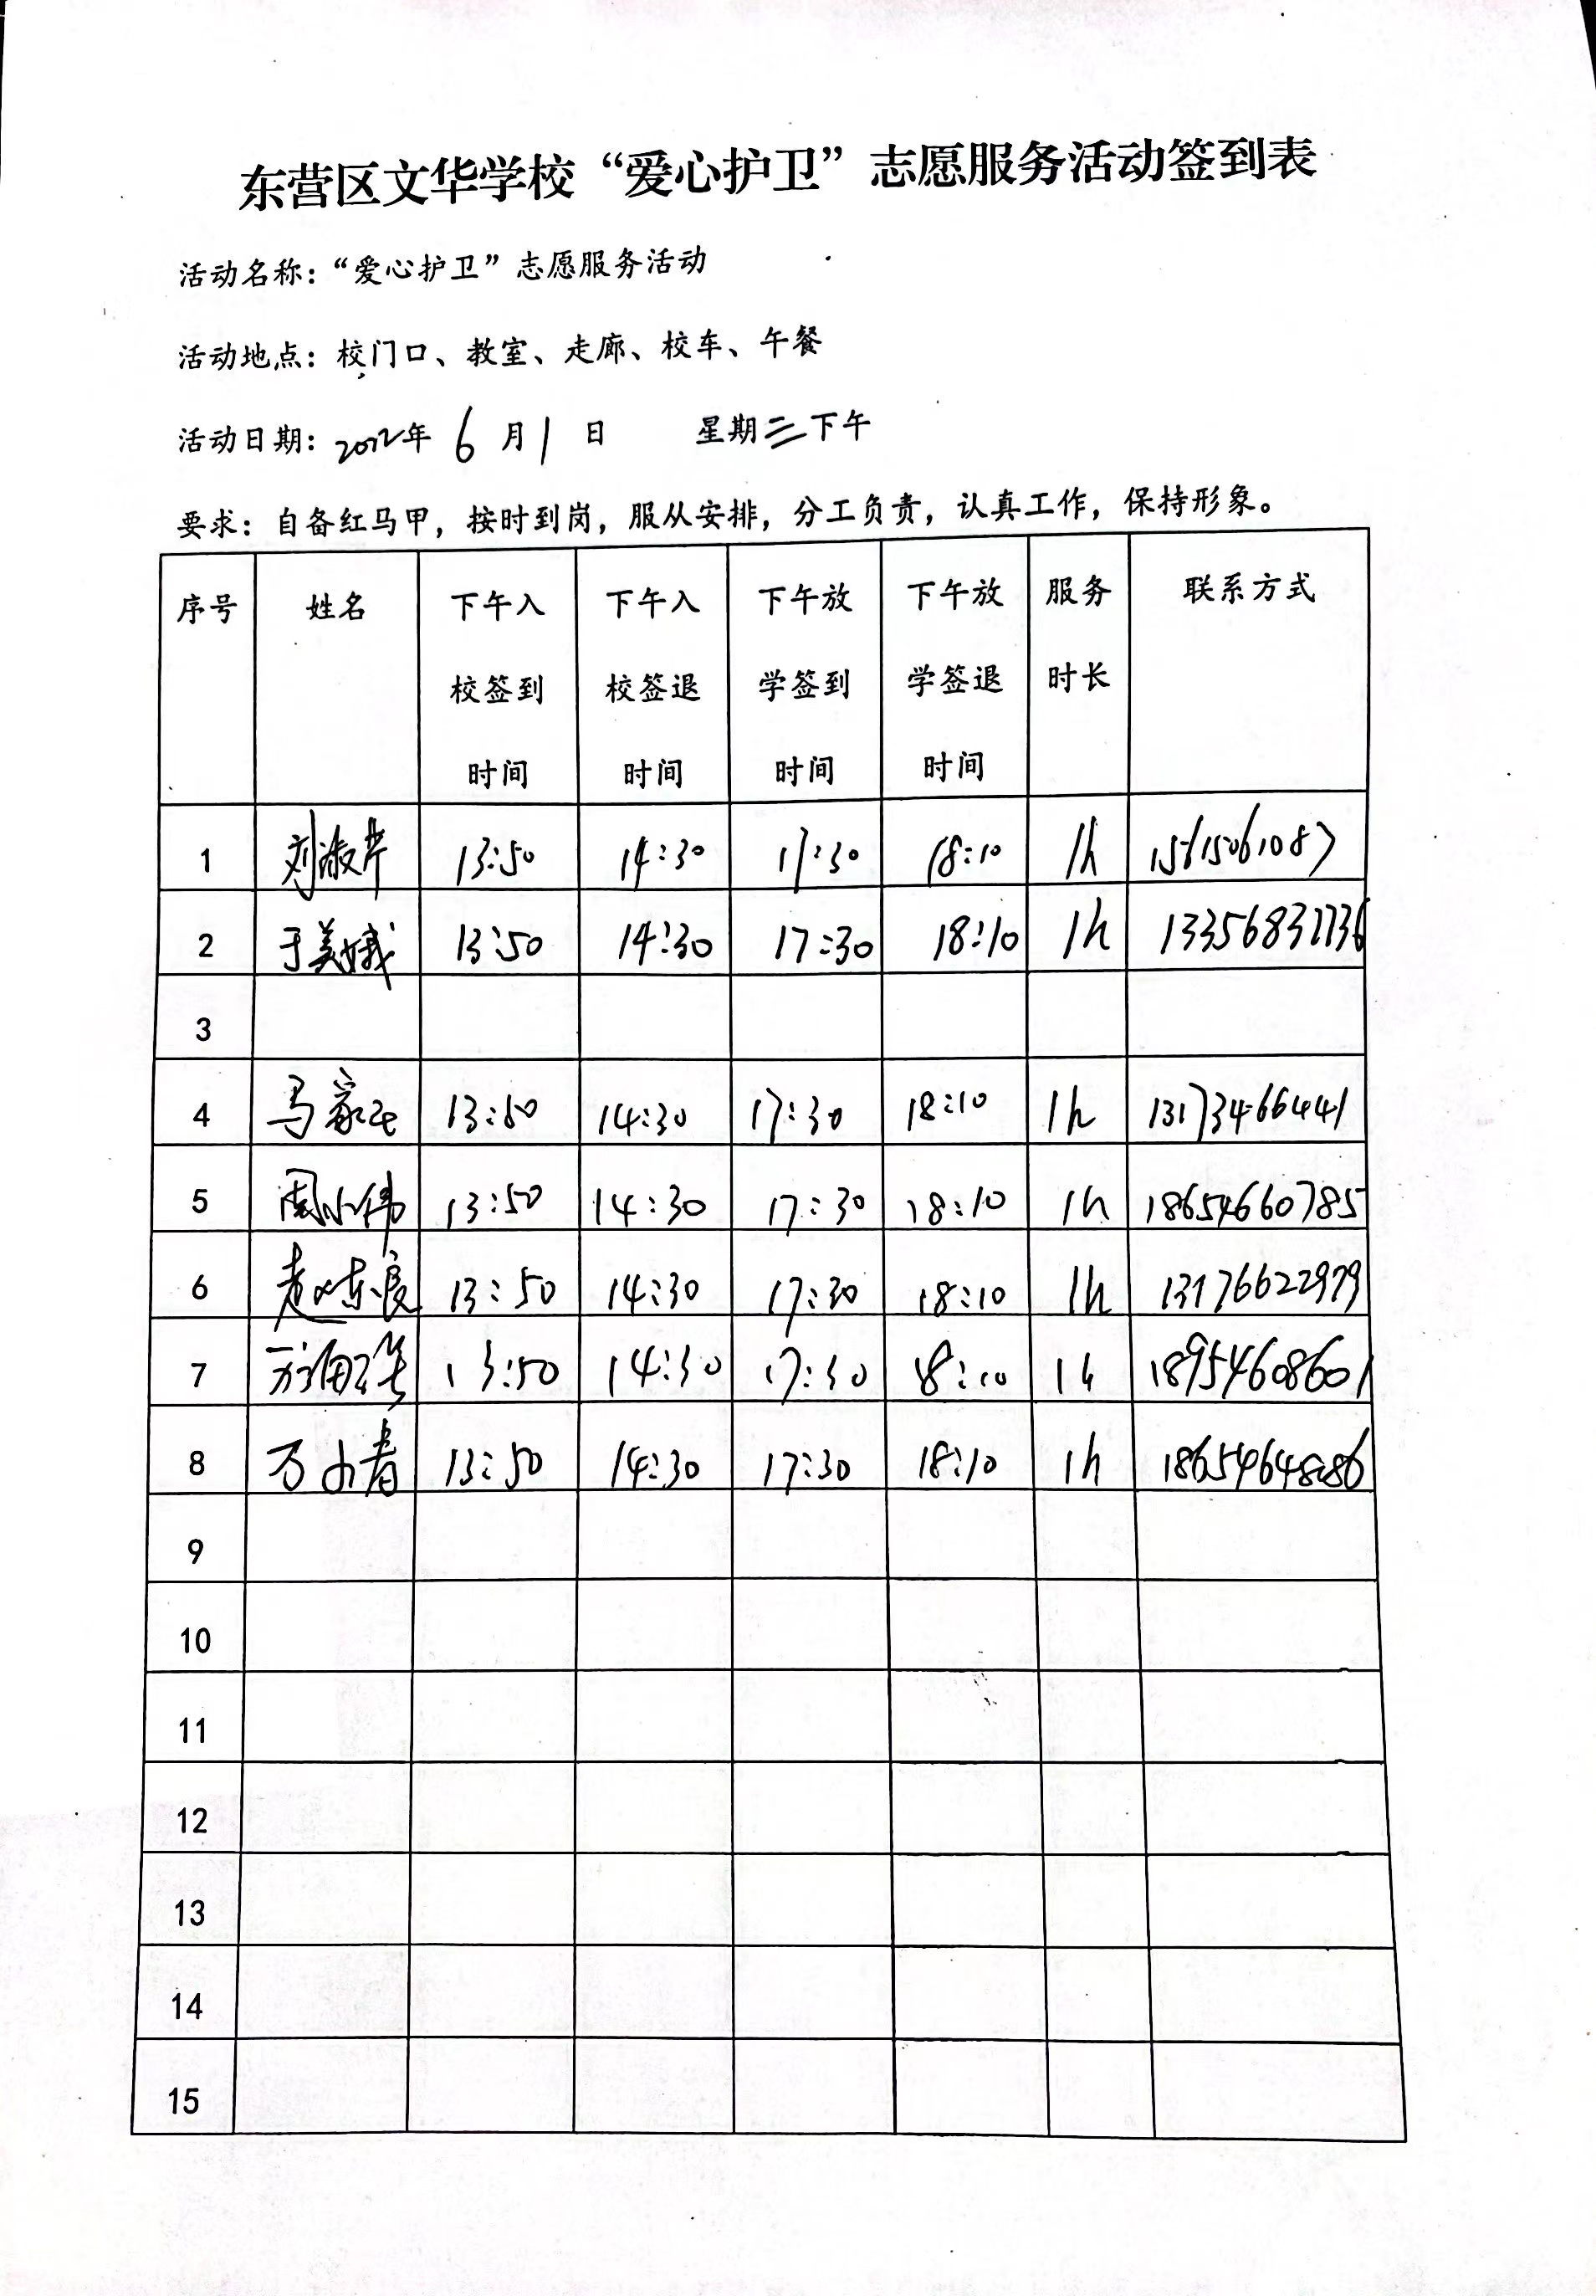 东营区文华学校“爱心护卫”志愿服务活动签到表
活动名称：“爱心护卫”志愿服务活动
活动地点：校门口、教室、走廊、校车、午餐
活动日期：2022年 6 月 1 日 星期三下午
要求：自备红马甲，按时到岗，服从安排，分工负责，认真工作，保持形象。
序号 姓名 下午入校签到时间 下午入校签退时间 下午放学签到时间 下午放学签退时间 服务时长 联系方式
1 刘淑芹 13:50 14:30 17:30 18:10 1h 15615061087
2 于美娥 13:50 14:30 17:30 18:10 1h
3
4 马家 13:50 14:30 17:30 18:10 1h 13173466441
5 周小伟 13:50 14:30 17:30 18:10 1h 18654660785
6 赵 良 13:50 14:30 17:30 18:10 1h 13176622979
7 13:50 14:30 17:30 18:10 1h 18954608601
8 万小青 13:50 14:30 17:30 18:10 1h
9
10
11
12
13
14
15